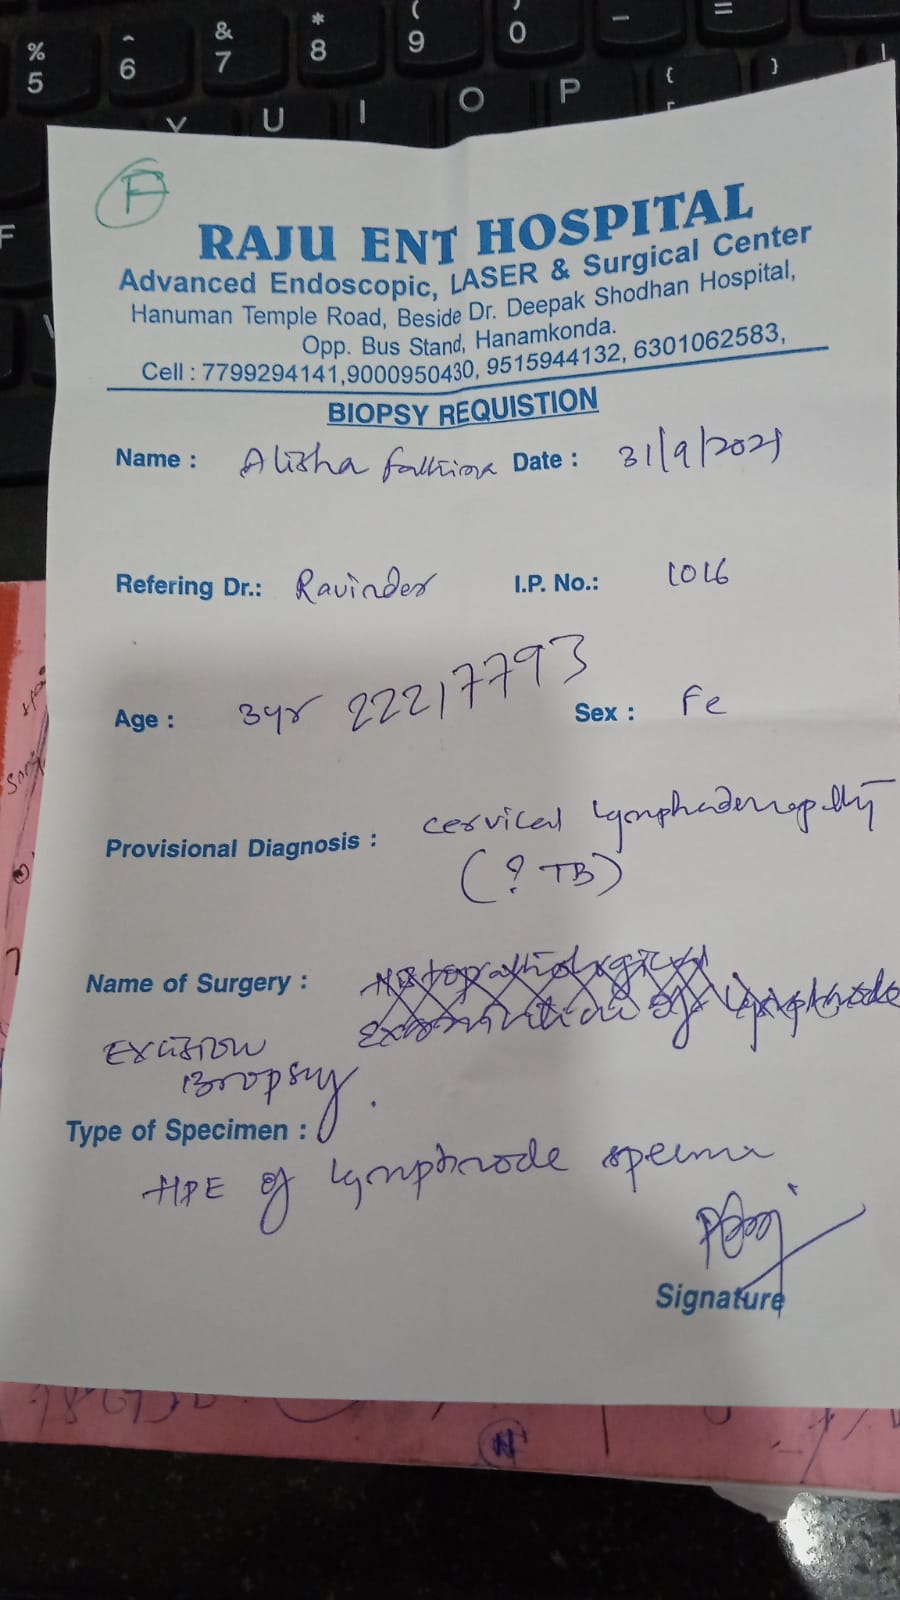 F
RAJU ENT HOSPITAL
Advanced Endoscopic, LASER & Surgical Center
Hanuman Temple Road, Beside Dr. Deepak Shodhan Hospital,
Opp. Bus Stand, Hanamkonda.
Cell : 7799294141,9000950430, 9515944132, 6301062583,
BIOPSY REQUISTION
Name : Alisha fathima Date : 31/9/2021
Refering Dr.: Ravinder I.P. No.: 1016
Age : 3yr 22217793 Sex : Fe
Provisional Diagnosis : cervical lymphadenopathy
(? TB)
Name of Surgery : Histopathological
Examination of lymphnode
Excision
Biopsy.
Type of Specimen :
HPE of lymphnode
Signature